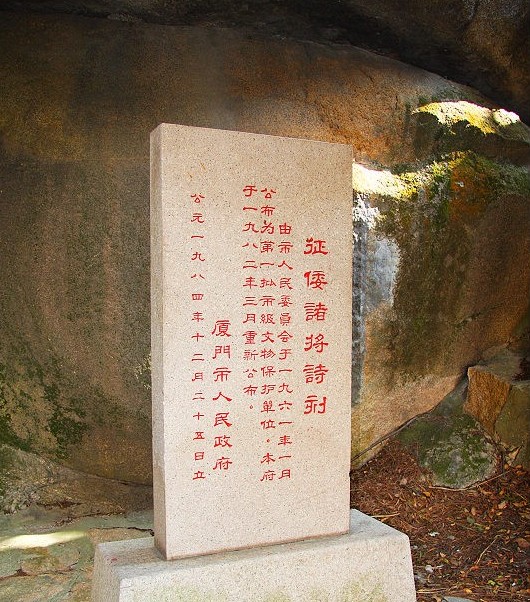 征倭諸将詩刻
由市人民委員会于一九六一年一月
公布为第一批市級文物保护單位。本府
于一九八二年三月重新公布。
厦門市人民政府
公元一九八四年十二月二十五日立